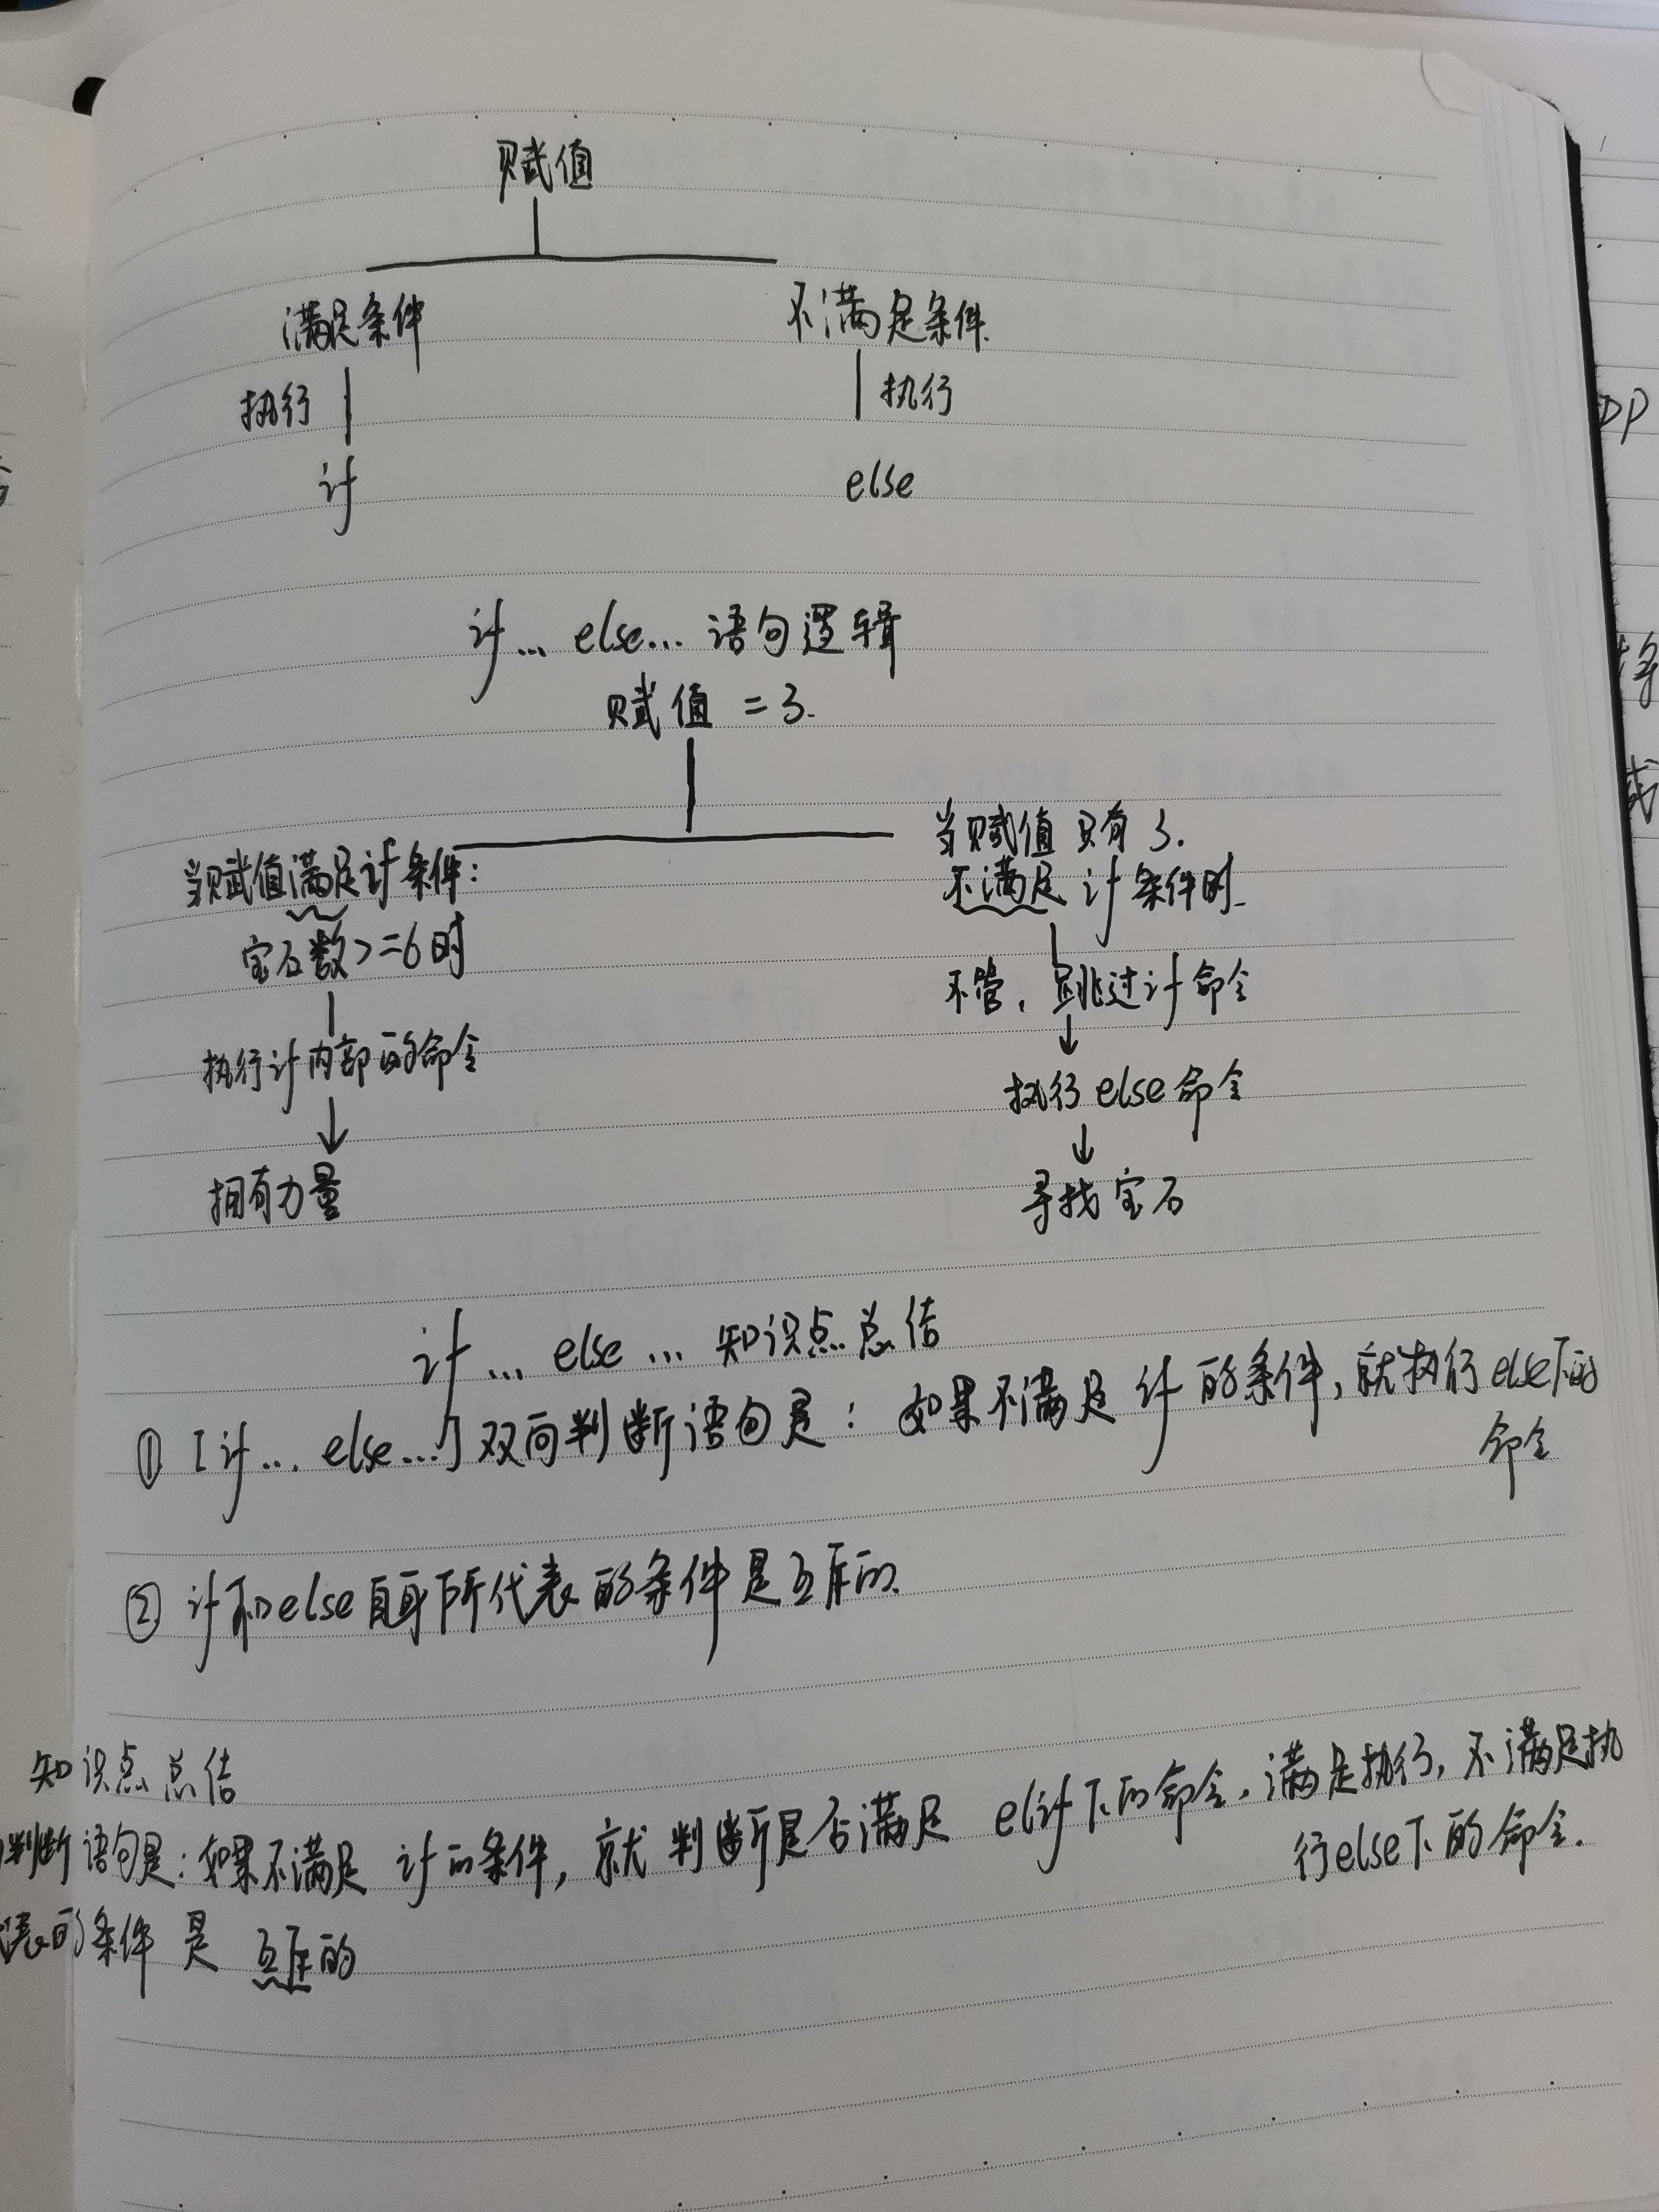 赋值
满足条件 不满足条件.
执行 执行
if else
if... else... 语句逻辑
赋值 = 3.
当赋值满足if条件: 当赋值只有3.
不满足if条件时.
宝石数>=6时
不管, 跳过if命令
执行if内部的命令
执行else命令
拥有力量
寻找宝石
if ... else ... 知识点总结
① [if... else...] 双向判断语句是: 如果不满足if的条件, 就执行else下的
命令
② if和else自身所代表的条件是互斥的.
知识点总结
判断语句是: 如果不满足 if的条件, 就判断是否满足 elif下的命令, 满足执行, 不满足执
行else下的命令.
表的条件是 互斥的
DP